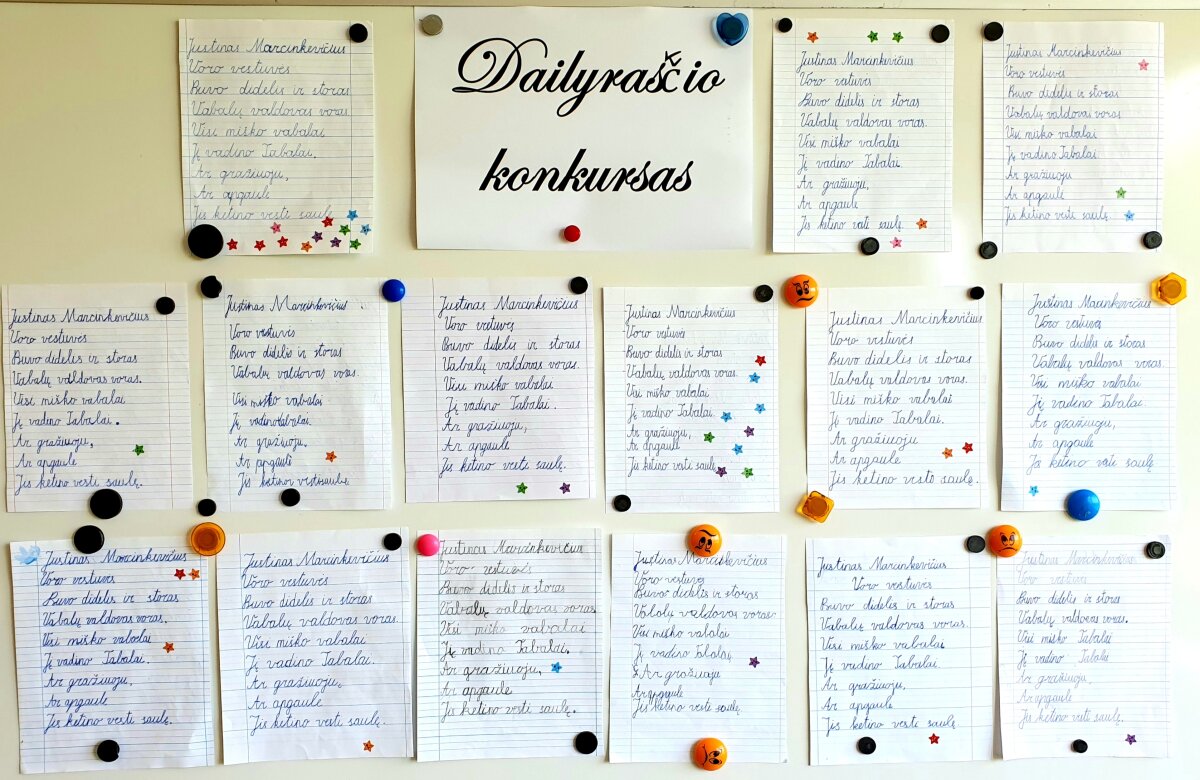 Justinas Marcinkevičius
Voro vestuvės
Buvo didelis ir storas
Vabalų valdovas voras.
Visi miško vabalai
Jį vadino Tabalai.
Ar gražuoju,
Ar apgaule
Jis ketino vesti saulę.
Dailyraščio
konkursas
Justinas Marcinkevičius
Voro vestuvės
Buvo didelis ir storas
Vabalų valdovas voras.
Visi miško vabalai
Jį vadino Tabalai.
Ar gražuoju,
Ar apgaule
Jis ketino vesti saulę.
Justinas Marcinkevičius
Voro vestuvės
Buvo didelis ir storas
Vabalų valdovas voras
Visi miško vabalai
Jį vadino Tabalai.
Ar gražuoju
Ar apgaule
Jis ketino vesti saulę.
Justinas Marcinkevičius
Voro vestuvės
Buvo didelis ir storas
Vabalų valdovas voras.
Visi miško vabalai
Jį vadino Tabalai.
Ar gražuoju,
Ar apgaule
Jis ketino vesti saulę.
Justinas Marcinkevičius
Voro vestuvės
Buvo didelis ir storas
Vabalų valdovas voras.
Visi miško vabalai
Jį vadino
Ar gražuoju,
Ar
Jis ketino
Justinas Marcinkevičius
Voro vestuvės
Buvo didelis ir storas
Vabalų valdovas voras.
Visi miško vabalai
Jį vadino Tabalai.
Ar gražuoju,
Ar apgaule
Jis ketino vesti saulę.
Justinas Marcinkevičius
Voro vestuvės
Buvo didelis ir storas
Vabalų valdovas voras.
Visi miško vabalai
Jį vadino Tabalai.
Ar gražuoju,
Ar apgaule
Jis ketino vesti saulę.
Justinas Marcinkevičius
Voro vestuvės
Buvo didelis ir storas
Vabalų valdovas voras.
Visi miško vabalai
Jį vadino Tabalai.
Ar gražuoju
Ar apgaule
Jis ketino vesti saulę.
Justinas Marcinkevičius
Voro vestuvės
Buvo didelis ir storas
Vabalų valdovas voras.
Visi miško vabalai
Jį vadino Tabalai.
Ar gražuoju,
Ar apgaule
Jis ketino vesti saulę
Justinas Marcinkevičius
Voro vestuvės
Buvo didelis ir storas
Vabalų valdovas voras.
Visi miško vabalai
Jį vadino Tabalai.
Ar gražuoju,
Ar apgaule
Jis ketino vesti saulę.
Justinas Marcinkevičius
Voro vestuvės
Buvo didelis ir storas
Vabalų valdovas voras.
Visi miško vabalai
Jį vadino Tabalai.
Ar gražuoju,
Ar apgaule
Jis ketino vesti saulę.
Justinas Marcinkevičius
Voro vestuvės
Buvo didelis ir storas
Vabalų valdovas voras.
Visi miško vabalai
Jį vadino Tabalai.
Ar gražuoju,
Ar apgaule
Jis ketino vesti saulę.
Justinas Marcinkevičius
Voro vestuvės
Buvo didelis ir storas
Vabalų valdovas voras.
Visi miško vabalai
Jį vadino Tabalai.
Ar gražuoju
Ar apgaule
Jis ketino vesti saulę
Justinas Marcinkevičius
Voro vestuvės
Buvo didelis ir storas
Vabalų valdovas voras.
Visi miško vabalai
Jį vadino Tabalai.
Ar gražuoju,
Ar apgaule
Jis ketino vesti saulę
Justinas Marcinkevičius
Voro vestuvės
Buvo didelis ir storas
Vabalų valdovas voras.
Visi miško Tabalai
Jį vadino Tabalai
Ar gražuoju,
Ar apgaule
Jis ketino vesti saulę.